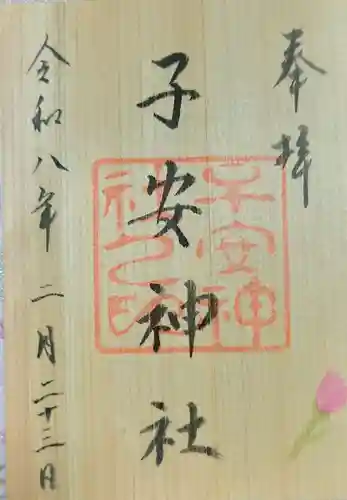 奉拝
子安神社
子安神社之印
令和八年 二月二十三日